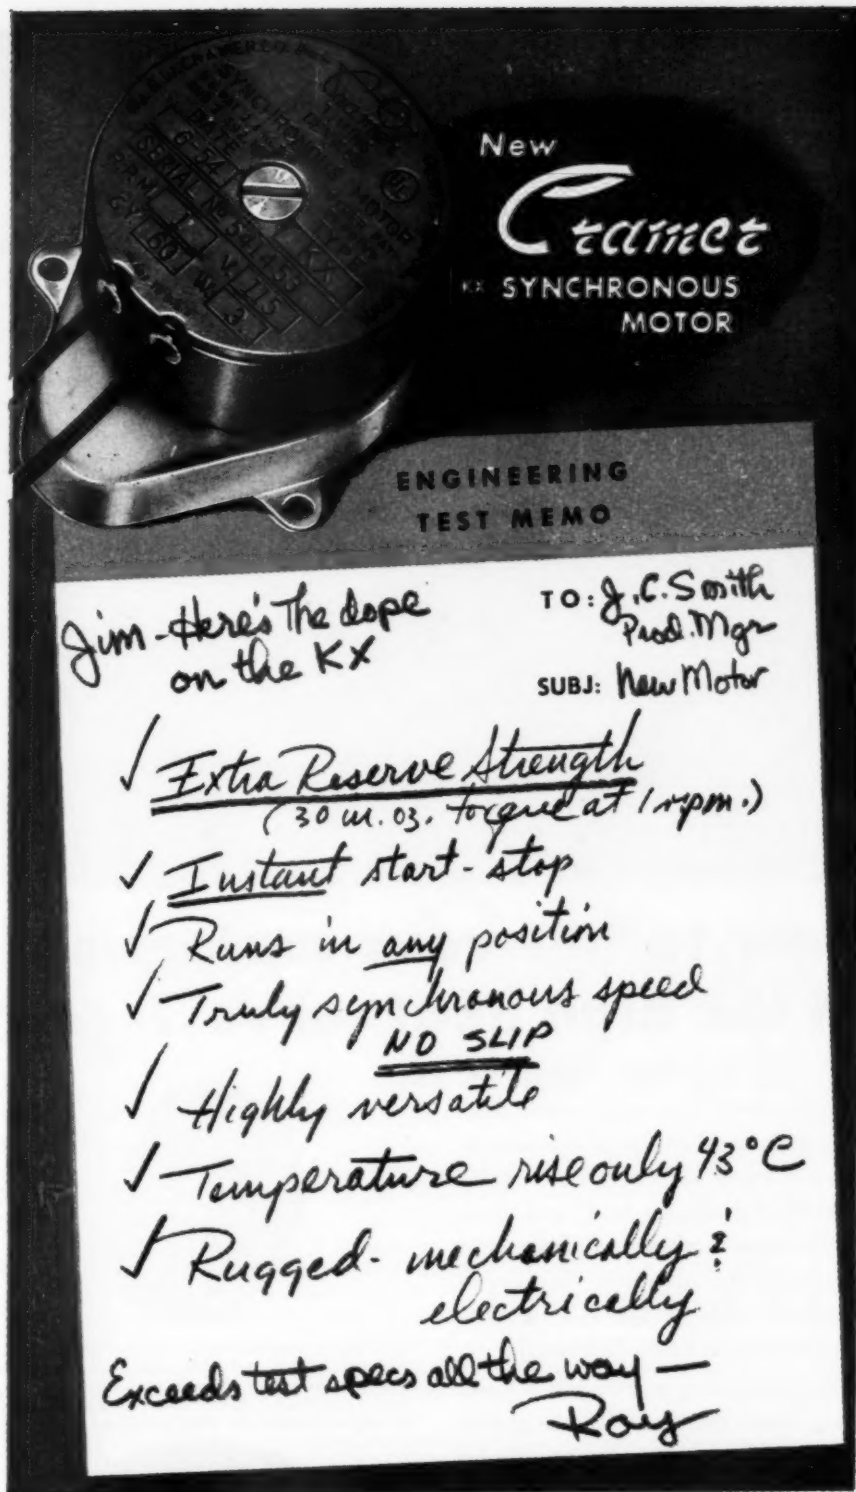 SYNCHRONOUS
MOTOR
DATE
TYPE
6-54
KX
SERIAL No 541453
R.P.M. 1 V. 115
CY 60 W. 3
New
Cramer
KX SYNCHRONOUS
MOTOR
ENGINEERING
TEST MEMO
Jim - Here's The dope
on the KX
TO: J.C. Smith
Prod. Mgr
SUBJ: New Motor
✓ Extra Reserve Strength
(30 in. oz. torque at 1 rpm.)
✓ Instant start-stop
✓ Runs in any position
✓ Truly synchronous speed
NO SLIP
✓ Highly versatile
✓ Temperature rise only 43°C
✓ Rugged - mechanically &
electrically
Exceeds test specs all the way —
Roy